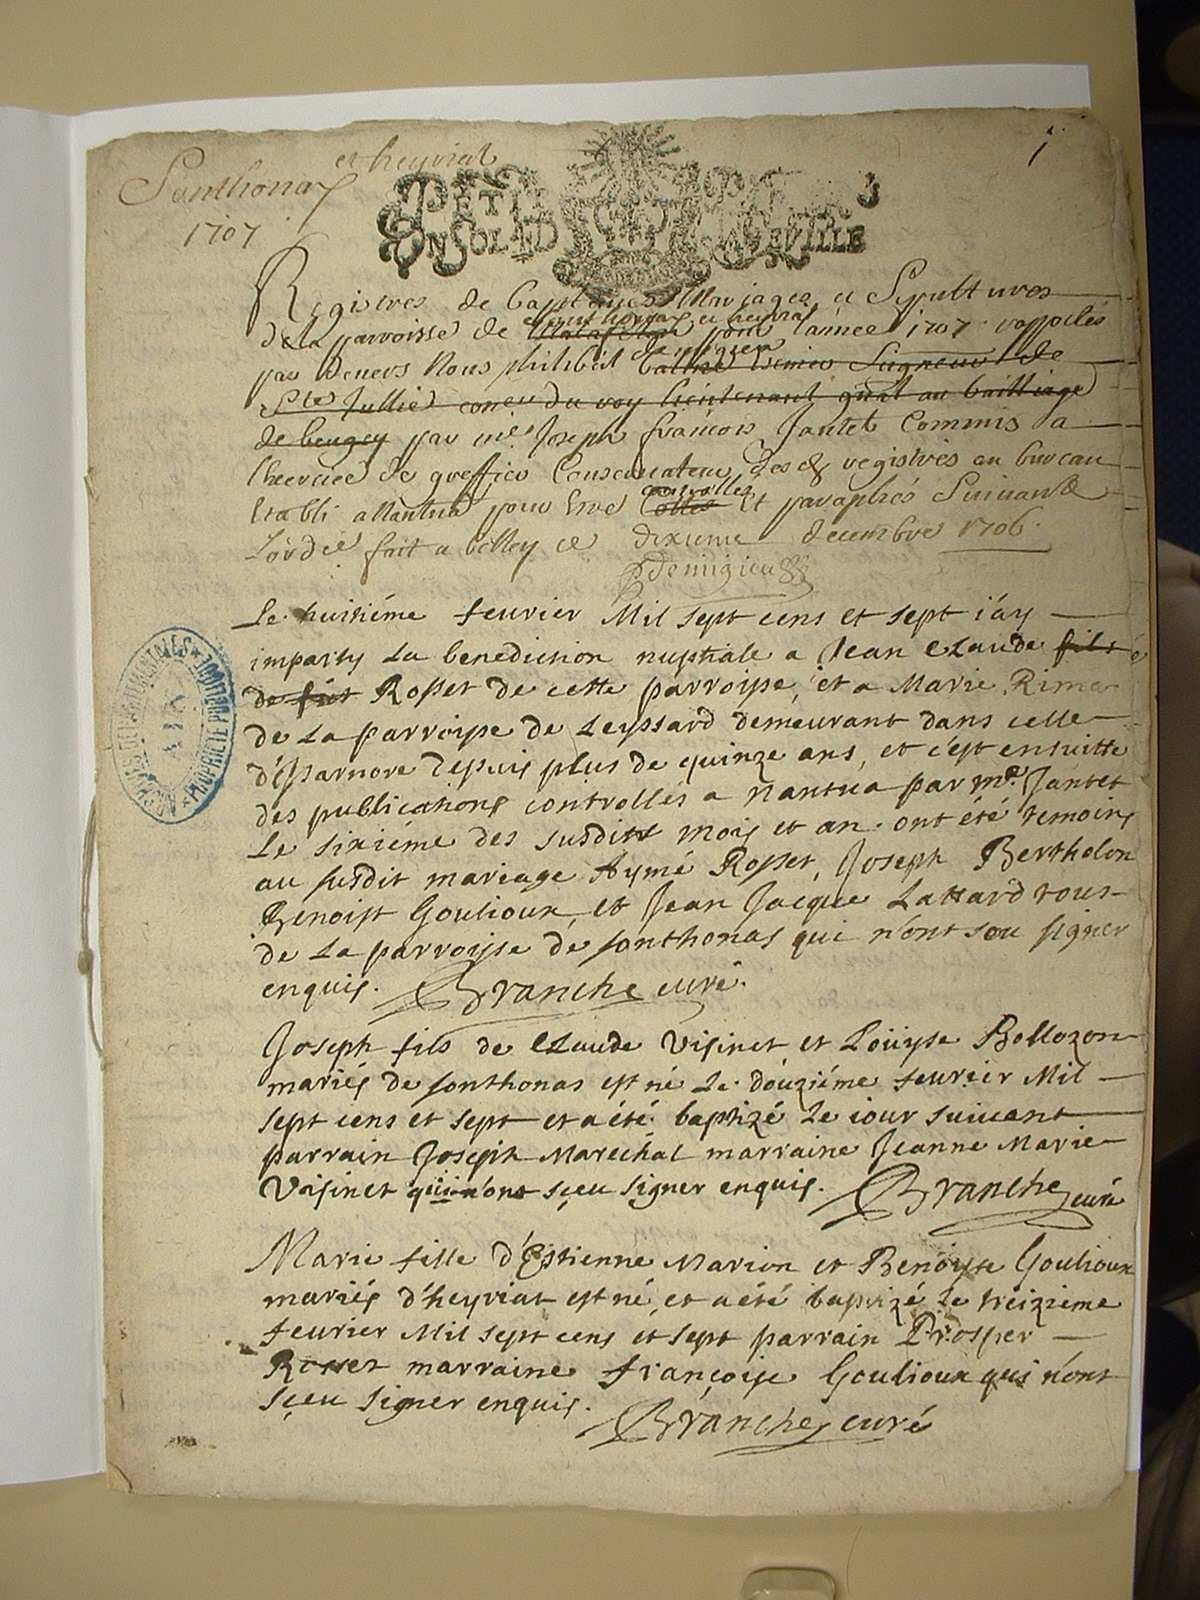 et heyriat
Santhonax
1707
1
PETIT PAPIERS
ONSOLID DEVILLE
Registres de Baptemes Mariages et Sepultures
de la parroisse de Santhonax et heyriat pour l'année 1707 rapportés
par devers Nous philibert demigieu balthé Seigneur de
Ste Jullie coner du roy lieutenant gnal au bailliage
de beugey par me Joseph françois Jantet Commis a
lexercice de greffier Conservateur des registres au bureau
Etabli a Nantua pour Estre controlles cottes Et paraphés Suivant
Lord.ce fait a belley ce dixieme decembre 1706.
Demigieu
Le huitiéme feurier Mil sept cens et sept i'ay
imparty La benediction nuptiale a Jean Claude fils
de feu Rosset de cette parroisse, et a Marie Rime
de La parroisse de Leyssard demeurant dans celle
d'Isarnore depuis plus de quinze ans, et c'est ensuitte
des publications controllés a nantua par mre. Jantet
Le sixiéme des susdits mois et an. ont été temoins
au susdit mariage Aymé Rosset, Joseph Bertholon
Benoist Goulioux, et Jean Jacque Lattard tous
de La parroisse de sonthonas qui n'ont sou signer
enquis. Branche curé.
Joseph fils de Claude Visinet et Loüyse Bollozon
mariés de sonthonas est né Le douziéme feurier Mil
sept cens et sept et a été baptizé Le iour suivant
parrain Joseph Maréchal marraine Jeanne Marie
Voisinet qui n'ont sçeu signer enquis. Branche curé
Marie fille d'Estienne Marion et Benoyte Goulioux
mariés d'heyriat est né, et a été baptizé Le treizieme
feurier Mil sept cens et sept parrain Prosper
Rosset marraine françoise Goulioux qui n'ont
sçeu signer enquis. Branche curé
ARCHIVES DEPARTEMENTALES
AIN
PROPRIETE PUBLIQUE